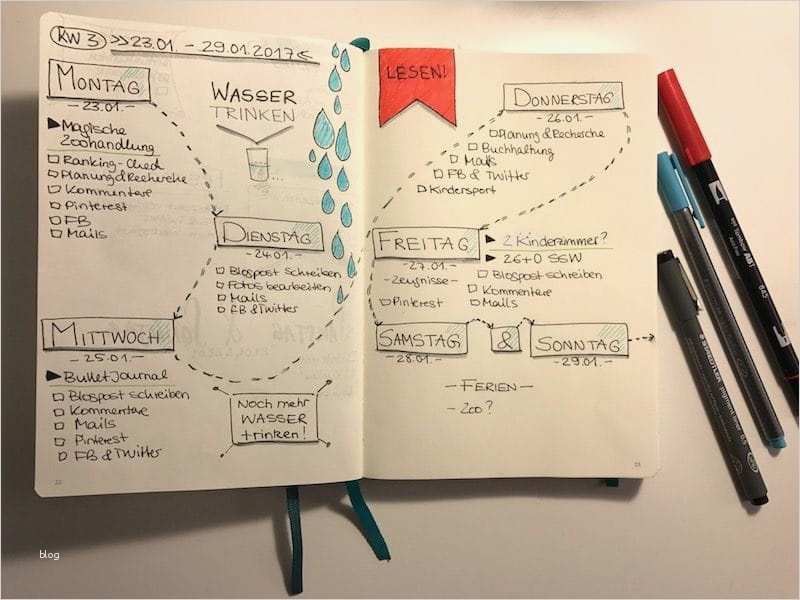 KW 3 >>23.01. - 29.01.2017<
MONTAG
- 23.01. -
Magische
Zoohandlung
Ranking-Check
Planung & Recherche
Kommentare
Pinterest
FB
Mails
WASSER
TRINKEN
...
DIENSTAG
- 24.01. -
Blogpost schreiben
Fotos bearbeiten
Mails
FB & Twitter
MITTWOCH
- 25.01. -
Bullet Journal
Blogpost schreiben
Kommentare
Mails
Pinterest
FB & Twitter
Noch mehr
WASSER
trinken!
22
LESEN!
DONNERSTAG
- 26.01. -
Planung & Recherche
Buchhaltung
Mails
FB & Twitter
Kindersport
FREITAG
- 27.01. -
- Zeugnisse -
Pinterest
2 Kinderzimmer?
26+0 SSW
Blogpost schreiben
Kommentare
Mails
SAMSTAG & SONNTAG
- 28.01. -
- 29.01. -
- FERIEN -
- Zoo?
23
STAEDTLER pigment liner
ABT
845
blog